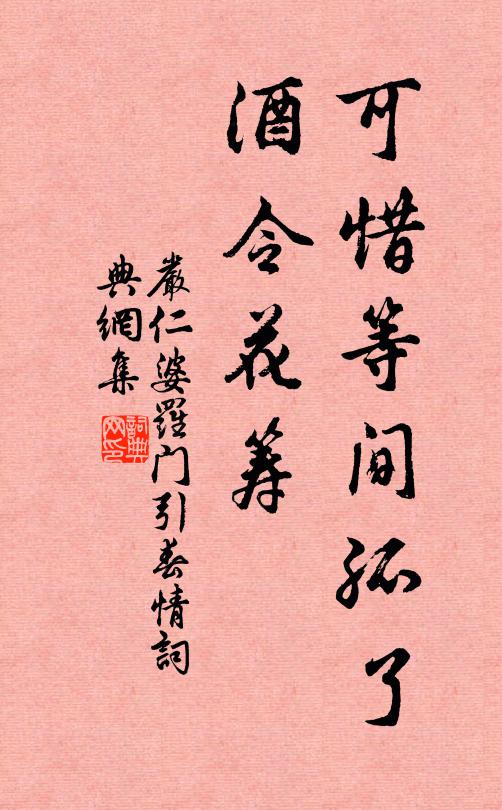 可惜等间孤了
酒令花筹
嚴仁婆羅门引春情詞
典網集
詞典网印